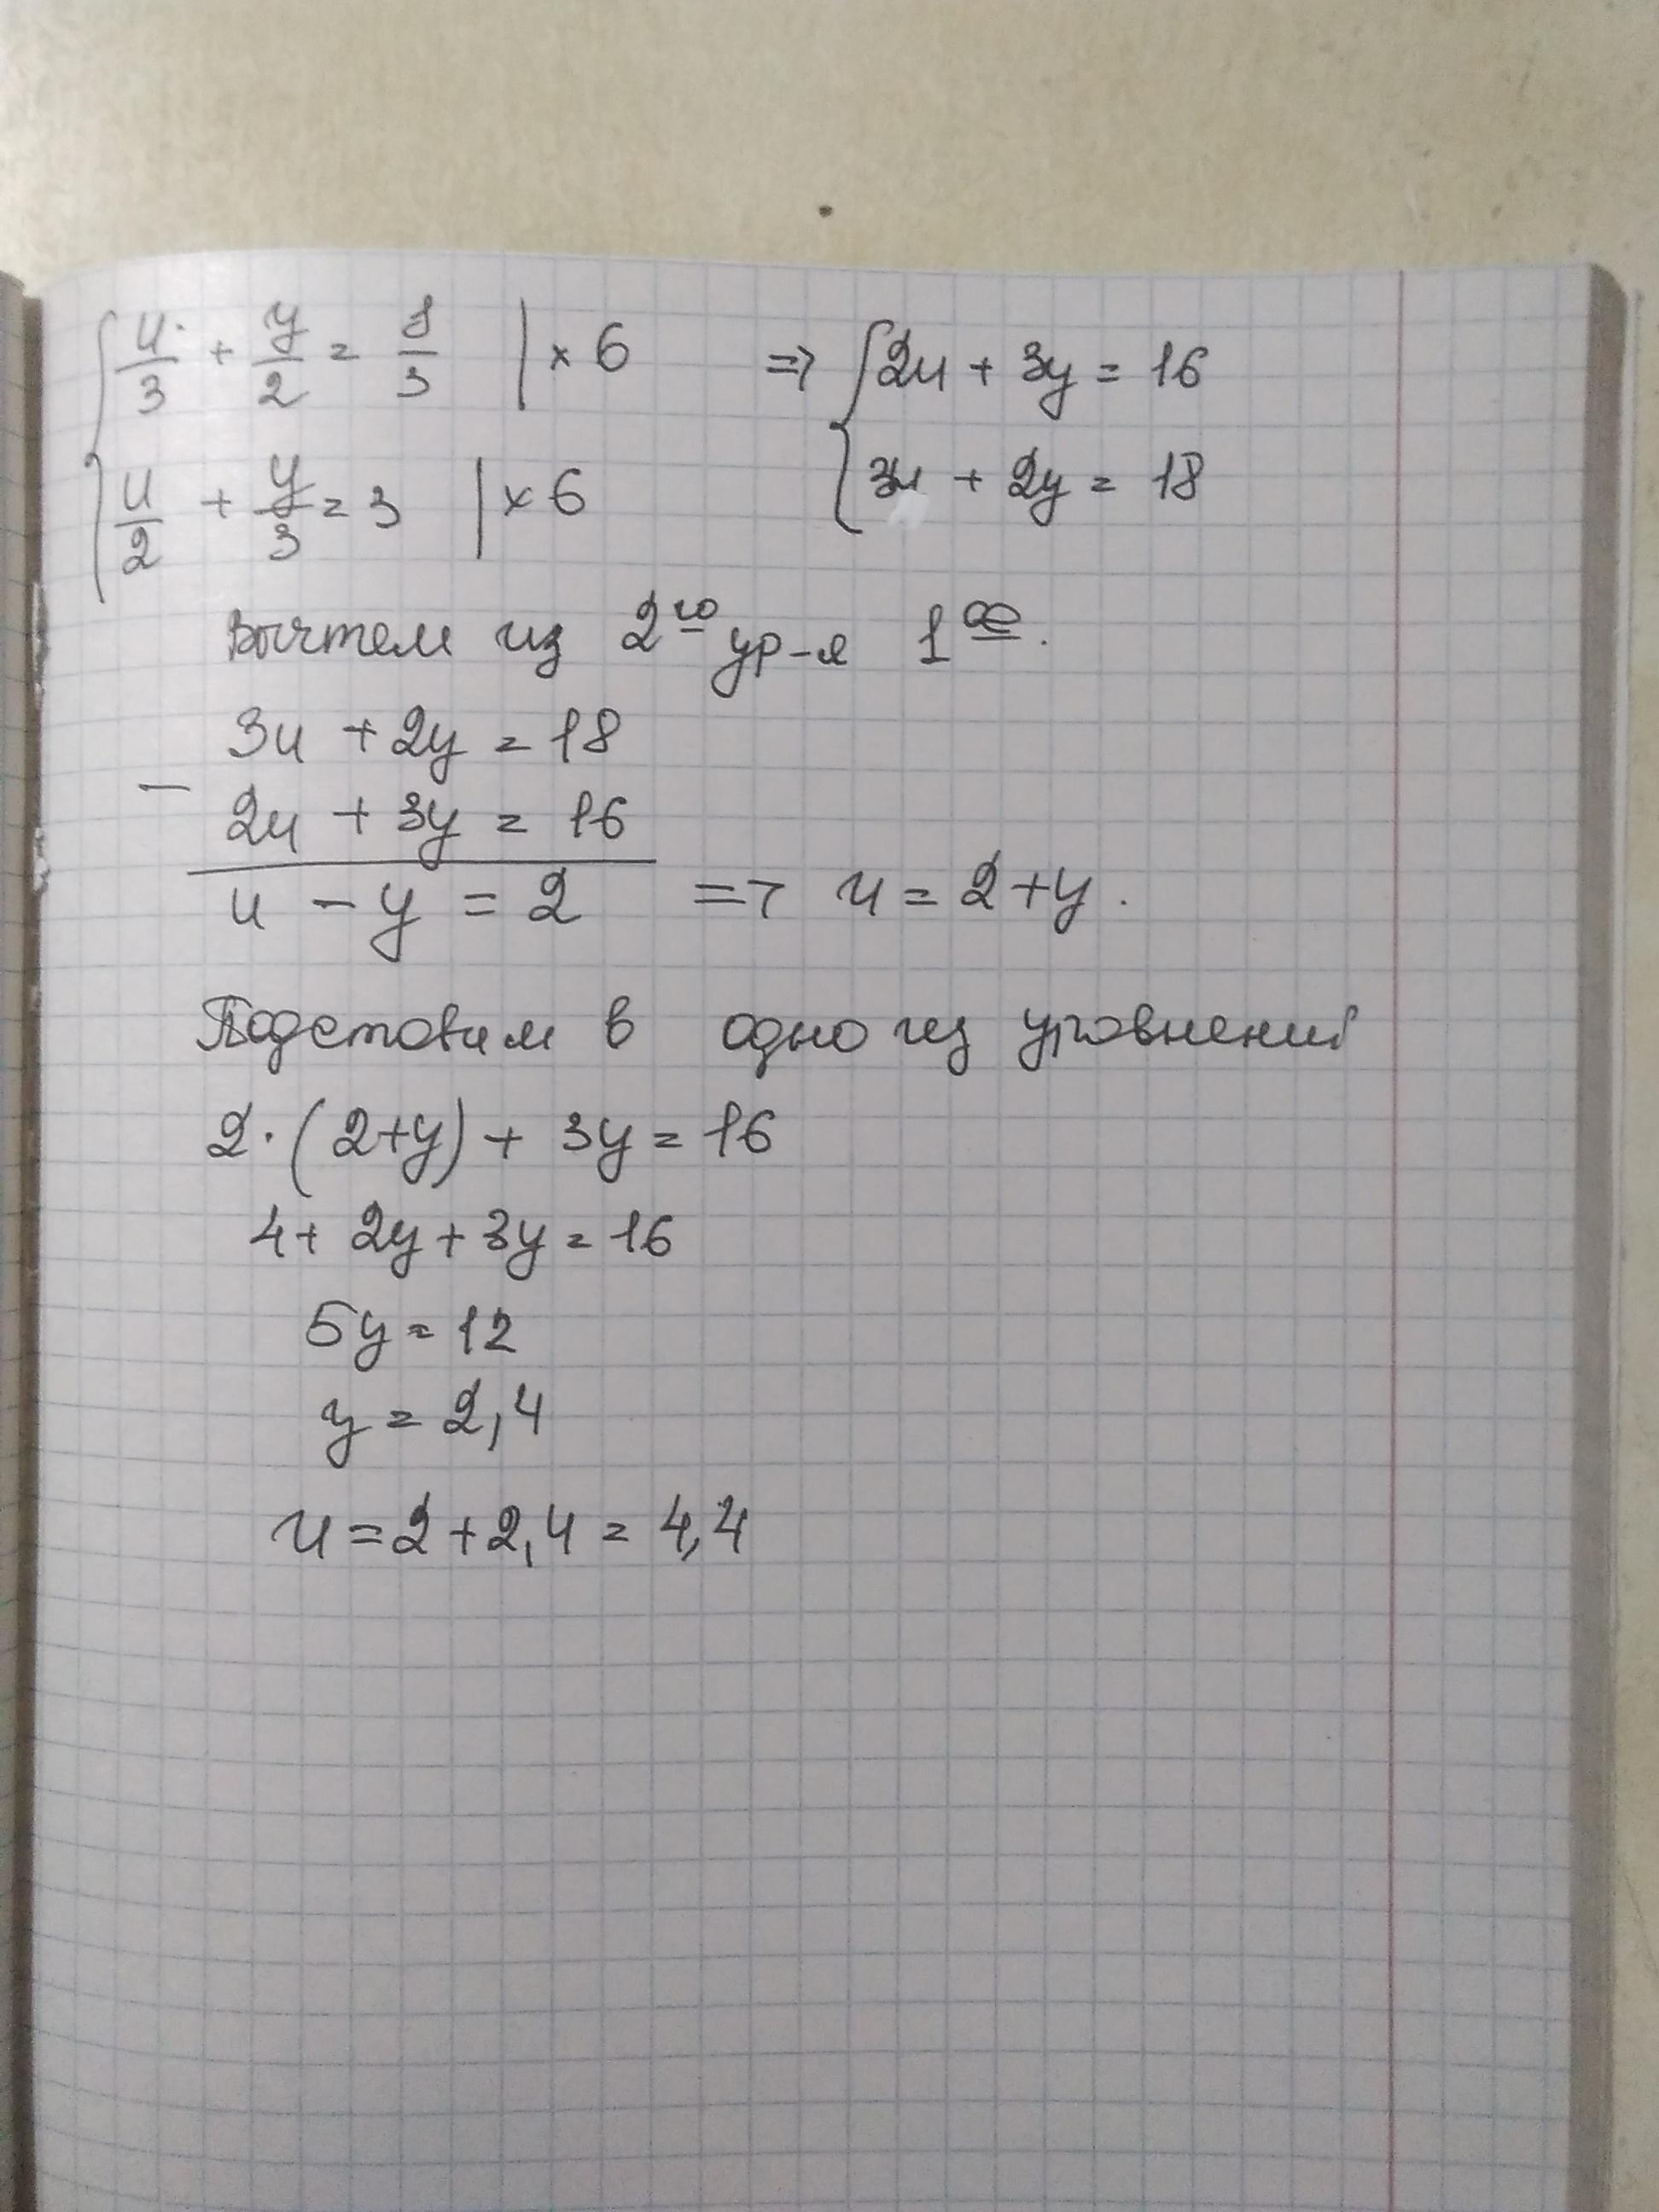 { u/3 + y/2 = 8/3 | × 6 => { 2u + 3y = 16
u/2 + y/3 = 3 | × 6 3u + 2y = 18
Вычтем из 2го ур-я 1ое.
3u + 2y = 18
− 2u + 3y = 16
u − y = 2 => u = 2+y.
Подставим в одно из уравнений
2·(2+y) + 3y = 16
4 + 2y + 3y = 16
5y = 12
y = 2,4
u = 2 + 2,4 = 4,4